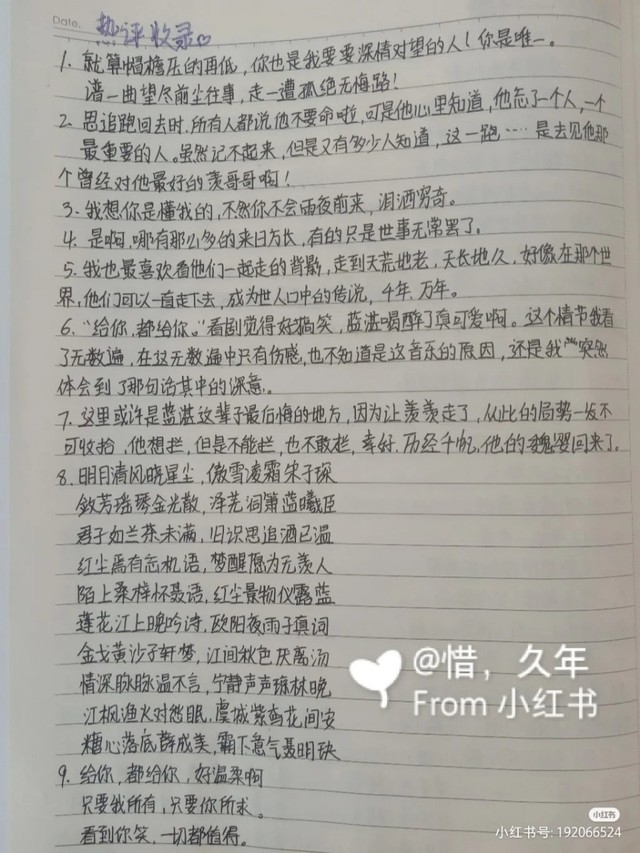 Date.
热评收录
1. 就算帽檐压的再低，你也是我要要深情对望的人！你是唯一。
谱一曲望尽前尘往事，走一遭孤绝无悔路！
2. 思追跑回去时，所有人都说他不要命啦，可是他心里知道，他忘了一个人，一个
最重要的人。虽然记不起来，但是又有多少人知道，这一跑……是去见他那
个曾经对他最好的羡哥哥啊！
3. 我想你是懂我的，不然你不会雨夜前来，泪洒穷奇。
4. 是啊，哪有那么多的来日方长，有的只是世事无常罢了。
5. 我也最喜欢看他们一起走的背影，走到天荒地老，天长地久，好像在那个世
界，他们可以一直走下去，成为世人口中的传说，千年，万年。
6. “给你，都给你。”看剧觉得好搞笑，蓝湛喝醉了真可爱啊。这个情节我看
了无数遍，在这无数遍中只有伤感，也不知道是这音乐的原因，还是我突然
体会到了那句话其中的深意。
7. 这里或许是蓝湛这辈子最后悔的地方，因为让羡羡走了，从此的局势一发不
可收拾，他想拦，但是不能拦，也不敢拦，幸好，历经千帆，他的魏婴回来了。
8. 明月清风晓星尘，傲雪凌霜宋子琛
敛芳瑶琴金光散，泽芜洞箫蓝曦臣
君子如兰茶未满，旧识思追酒已温
红尘焉有忘机语，梦醒愿为无羡人
陌上桑梓怀聂语，红尘景物仪露蓝
莲花江上晚吟诗，欧阳夜雨子真词
金戈黄沙子轩梦，江间秋色厌离汤
情深脉脉温不言，宁静声声琼林晚
江枫渔火对愁眠，虞城紫鸢花间安
糖心落底薛成美，霸下意气聂明玦
9. 给你，都给你，好温柔啊
只要我所有，只要你所求。
看到你笑，一切都值得。
@惜，久年
From 小红书
小红书
小红书号：192066524